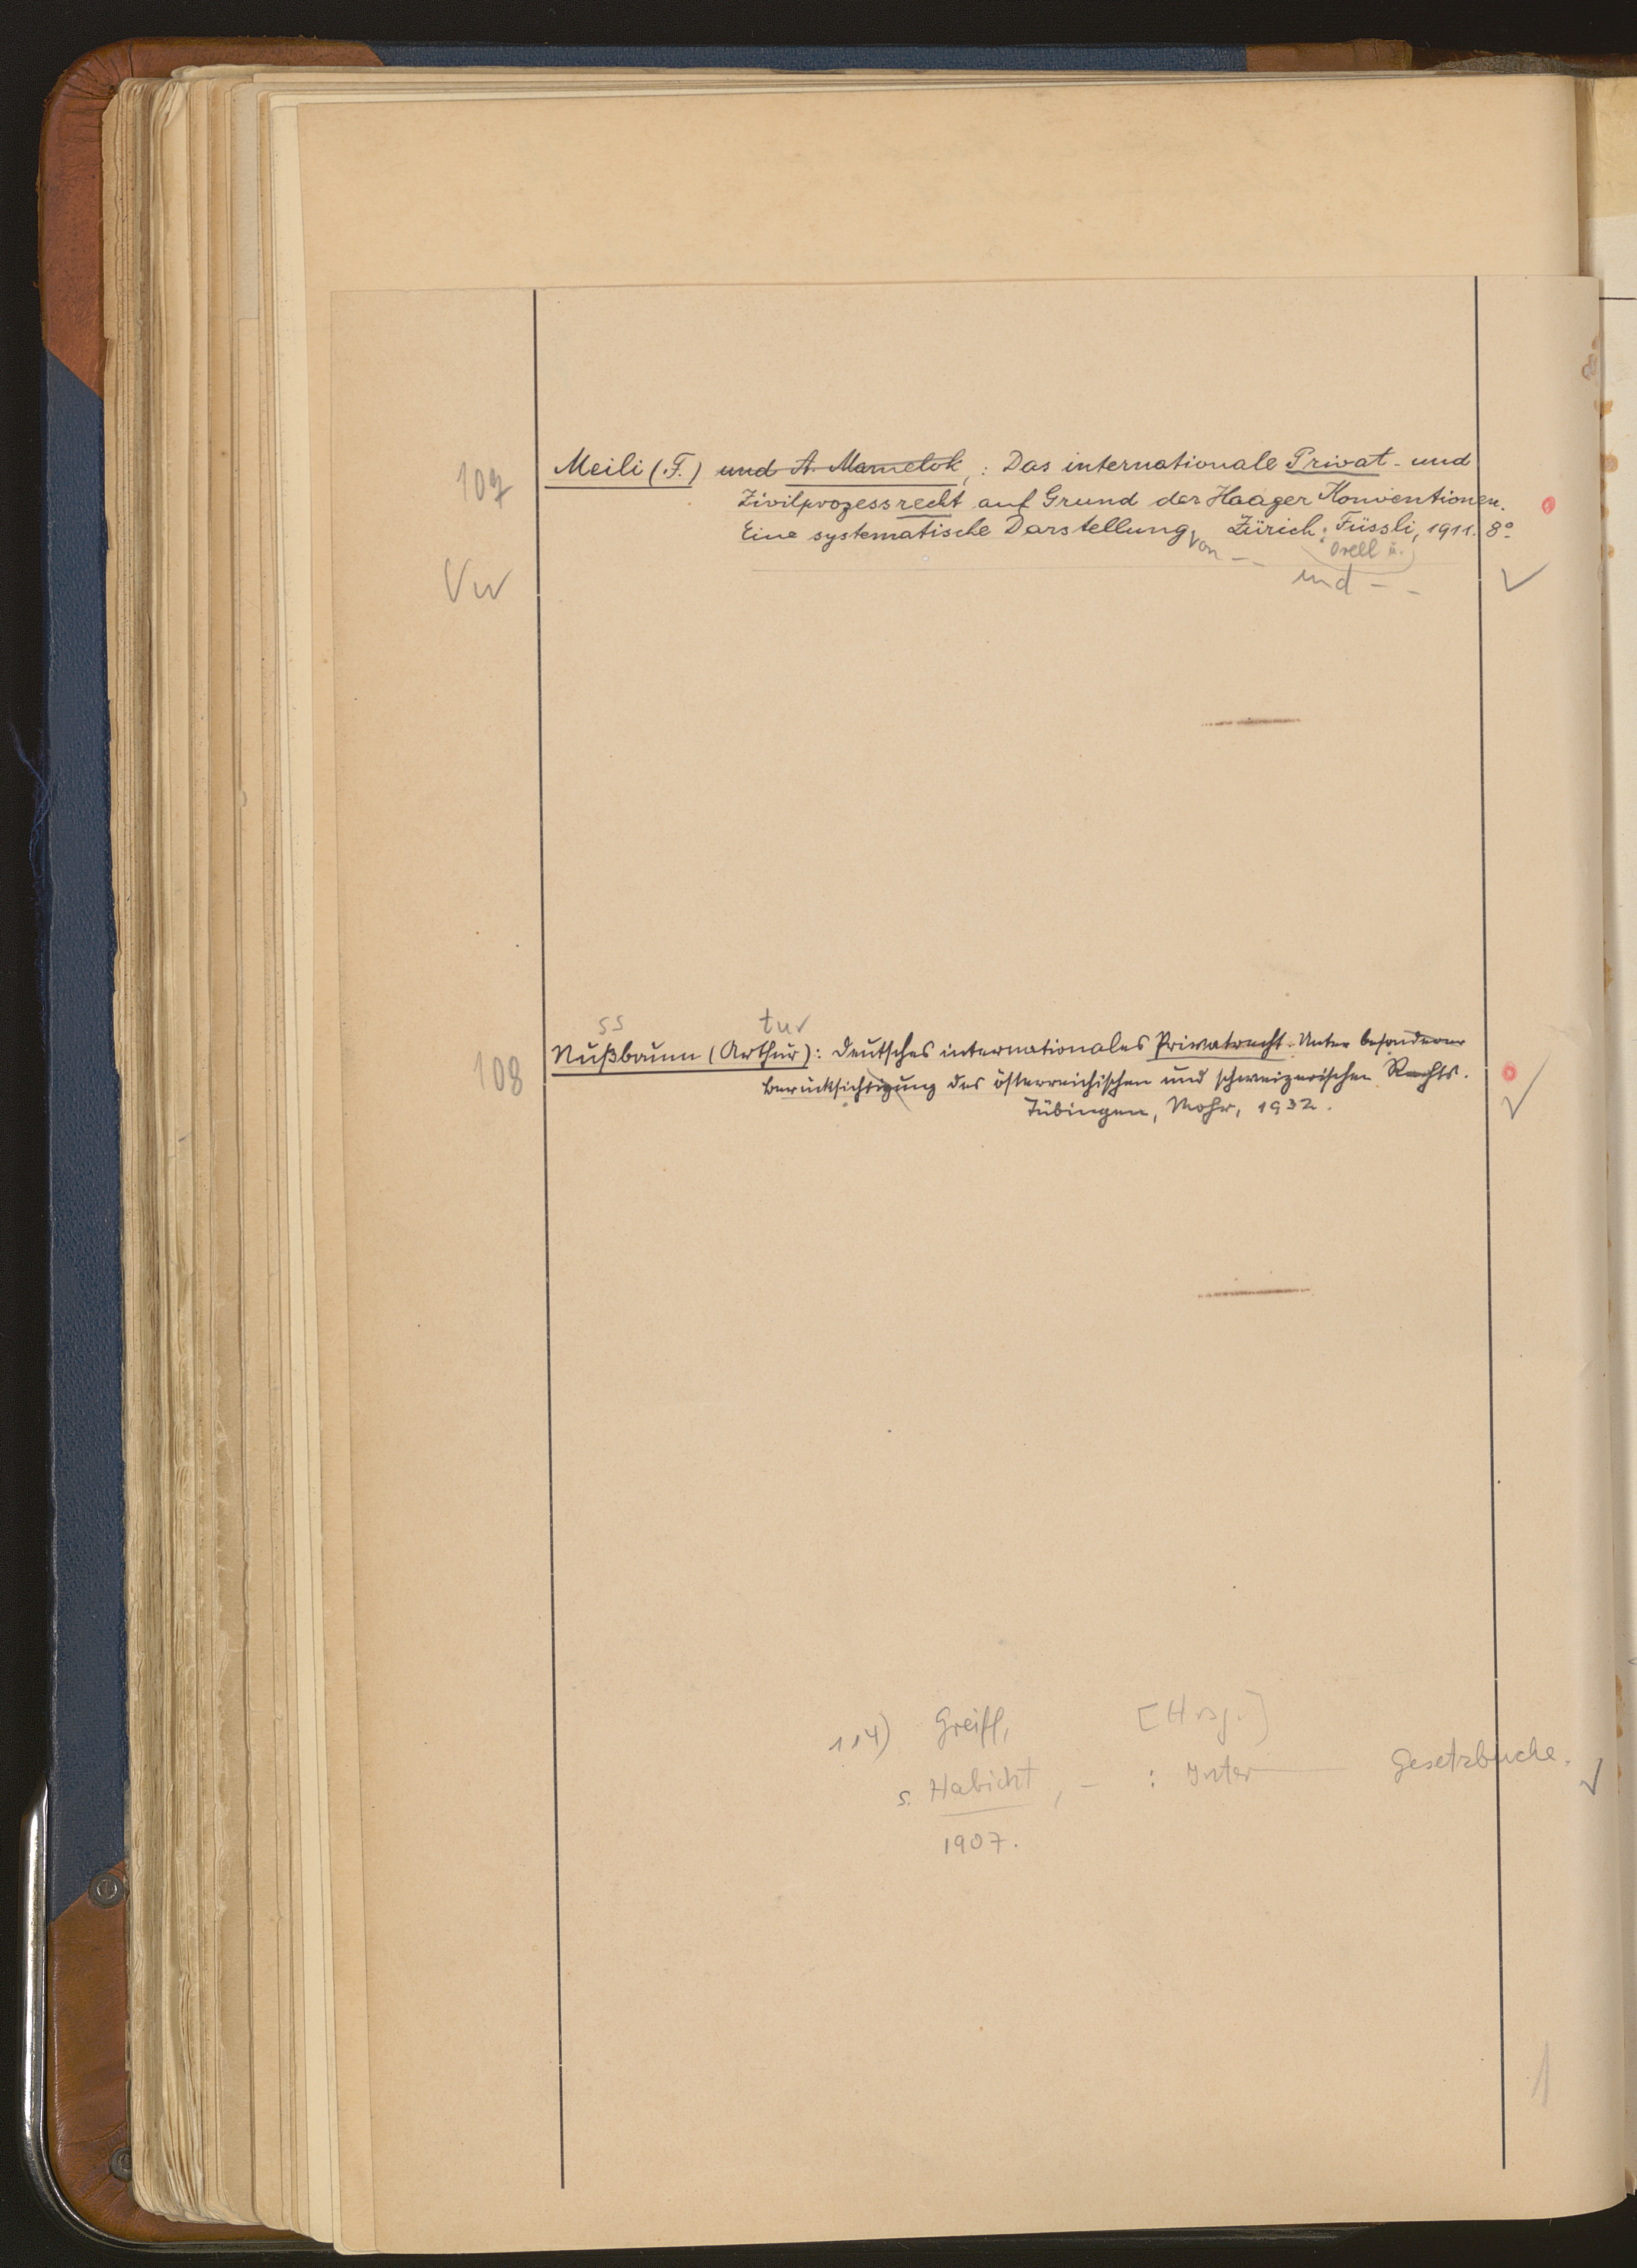 107 Meili (F.) und A. Mamelok, : Das internationale Privat- und
Zivilprozessrecht auf Grund der Haager Konventionen.
Eine systematische Darstellung von - - Zürich: Füssli, 1911. 8°
Orell ü.
und - -
Vw
ss tur
108 Nußbaum (Arthur): Deutsches internationales Privatrecht. Unter besonderer
Berücksichtigung des österreichischen und schweizerischen Rechts.
Tübingen, Mohr, 1932.
114) Greiff, [Hrsg.]
s. Habicht, - : Inter Gesetzbuche.
1907.
1